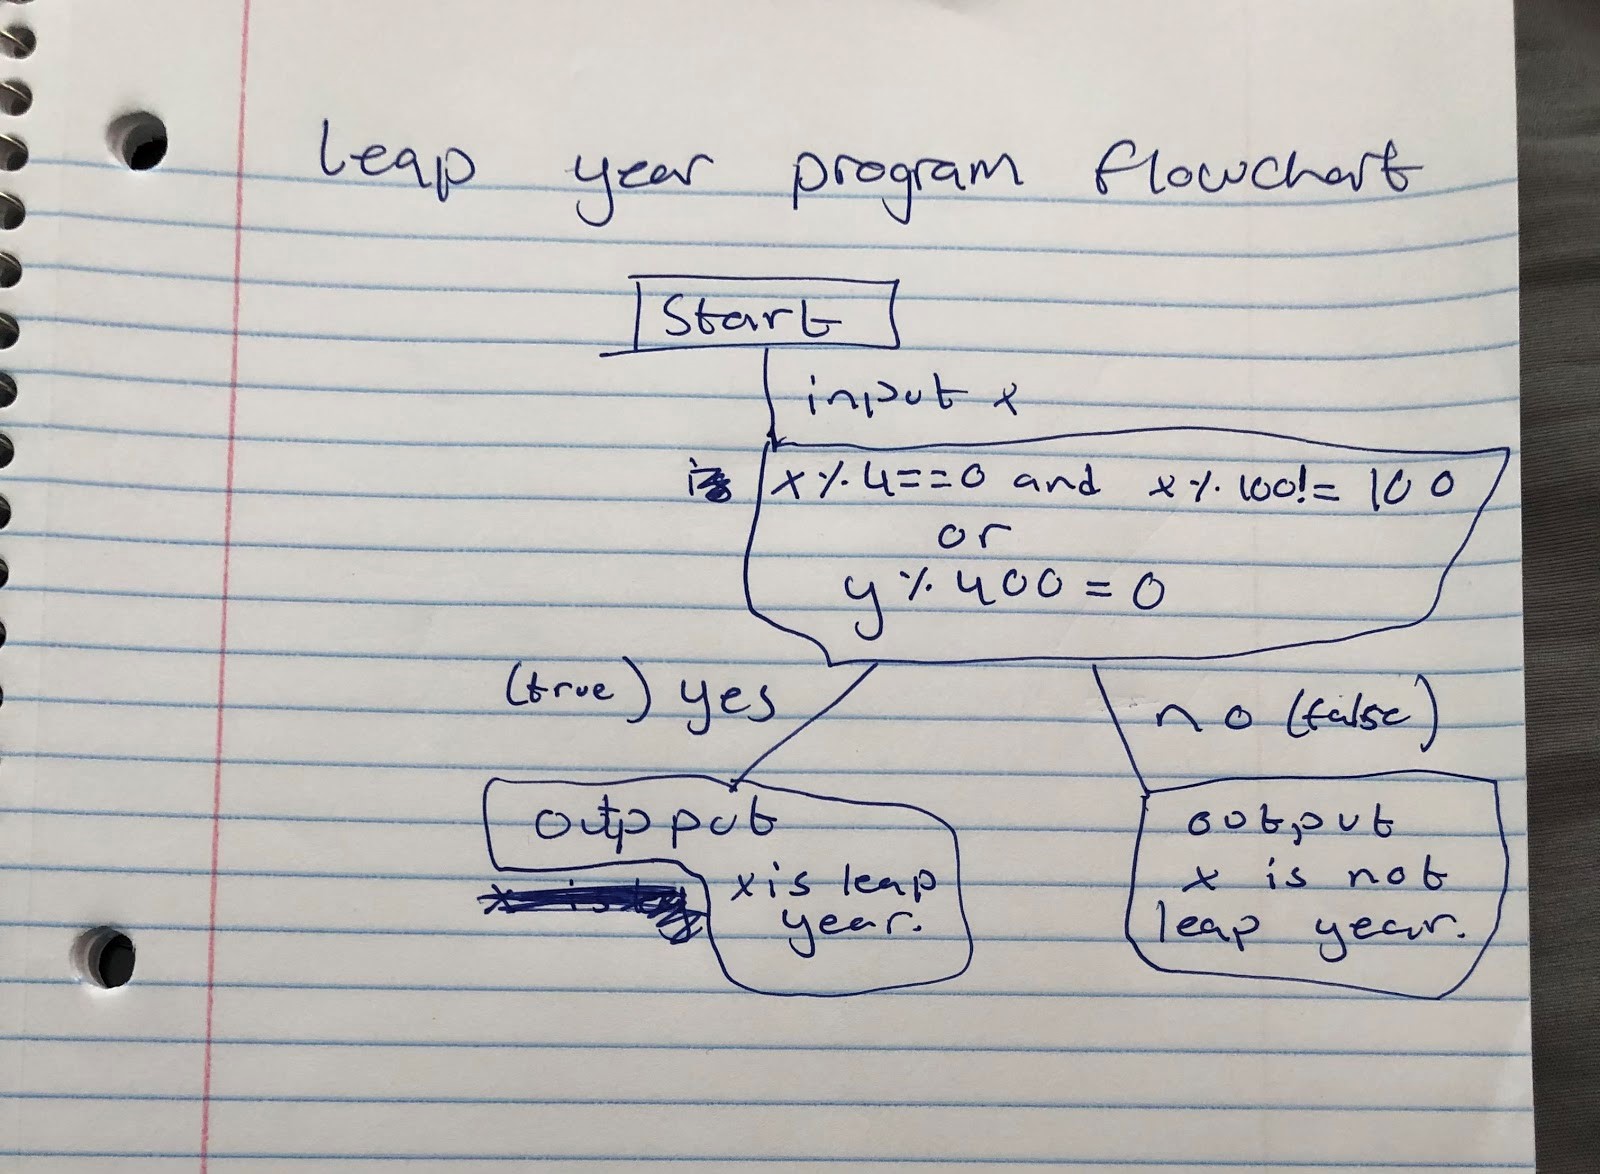 leap year program flowchart
Start
input x
x % 4==0 and x % 100!= 100
or
y % 400 = 0
(true) yes
no (false)
outp put
x is leap
year.
output
x is not
leap year.